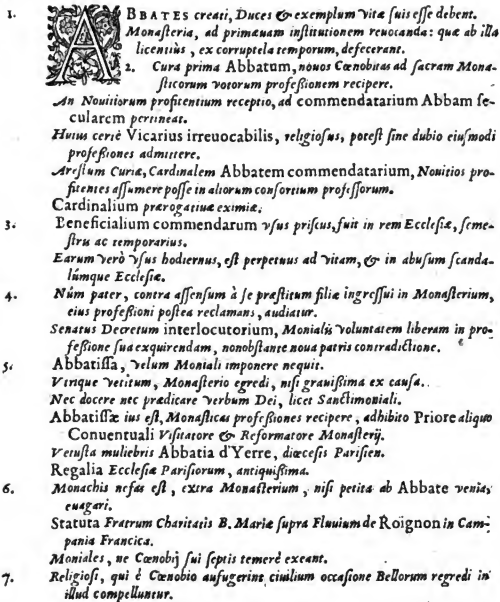 1. ABBATES creati, Duces & exemplum vitæ suis esse debent.
Monasteria, ad primæuam institutionem reuocanda: quæ ab illa
licentiùs, ex corruptela temporum, defecerant.
2. Cura prima Abbatum, nouos Cœnobitas ad sacram Mona-
sticorum votorum professionem recipere.
An Nouitiorum profitentium receptio, ad commendatarium Abbam se-
cularem pertineat.
Huius certè Vicarius irreuocabilis, religiosus, potest sine dubio eiusmodi
professiones admittere.
Arestum Curiæ, Cardinalem Abbatem commendatarium, Nouitios pro-
fitentes assumere posse in aliorum consortium professorum.
Cardinalium prærogatiuæ eximiæ.
3. Beneficialium commendarum vsus priscus, fuit in rem Ecclesiæ, seme-
stris ac temporarius.
Earum verò vsus hodiernus, est perpetuus ad vitam, & in abusum scanda-
lúmque Ecclesiæ.
4. Núm pater, contra assensum à se præstitum filiæ ingressui in Monasterium,
eius professioni postea reclamans, audiatur.
Senatus Decretum interlocutorium, Monialis voluntatem liberam in pro-
fessione sua exquirendam, nonobstante noua patris contradictione.
5. Abbatissa, velum Moniali imponere nequit.
Vtrique vetitum, Monasterio egredi, nisi grauissima ex causa.
Nec docere nec prædicare verbum Dei, licet Sanctimoniali.
Abbatissæ ius est, Monasticas professiones recipere, adhibito Priore aliquo
Conuentuali Visitatore & Reformatore Monasterij.
Vetusta muliebris Abbatia d'Yerre, diœcesis Parisien.
Regalia Ecclesiæ Parisiorum, antiquissima.
6. Monachis nefas est, extra Monasterium, nisi petita ab Abbate venia,
euagari.
Statuta Fratrum Charitatis B. Mariæ supra Fluuium de Roignon in Cam-
pania Francica.
Moniales, ne Cœnobij sui septis temerè exeant.
7. Religiosi, qui è Cœnobio aufugerint ciuilium occasione Bellorum regredi in
illud compelluntur.